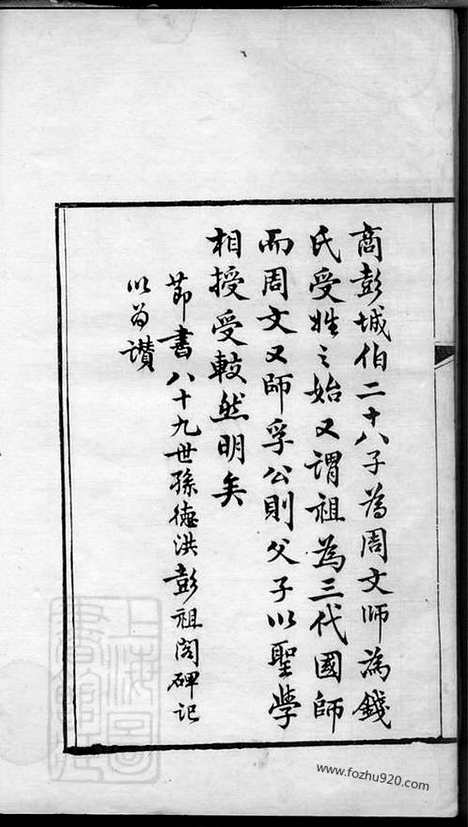 商彭城伯二十八子為周文師為錢
氏受姓之始又謂祖為三代國師
而周文又師孚公則父子以聖學
相授受較然明矣
節書八十九世孫德洪彭祖閣碑記
以為讚
上海圖書館藏
www.fozhu920.com